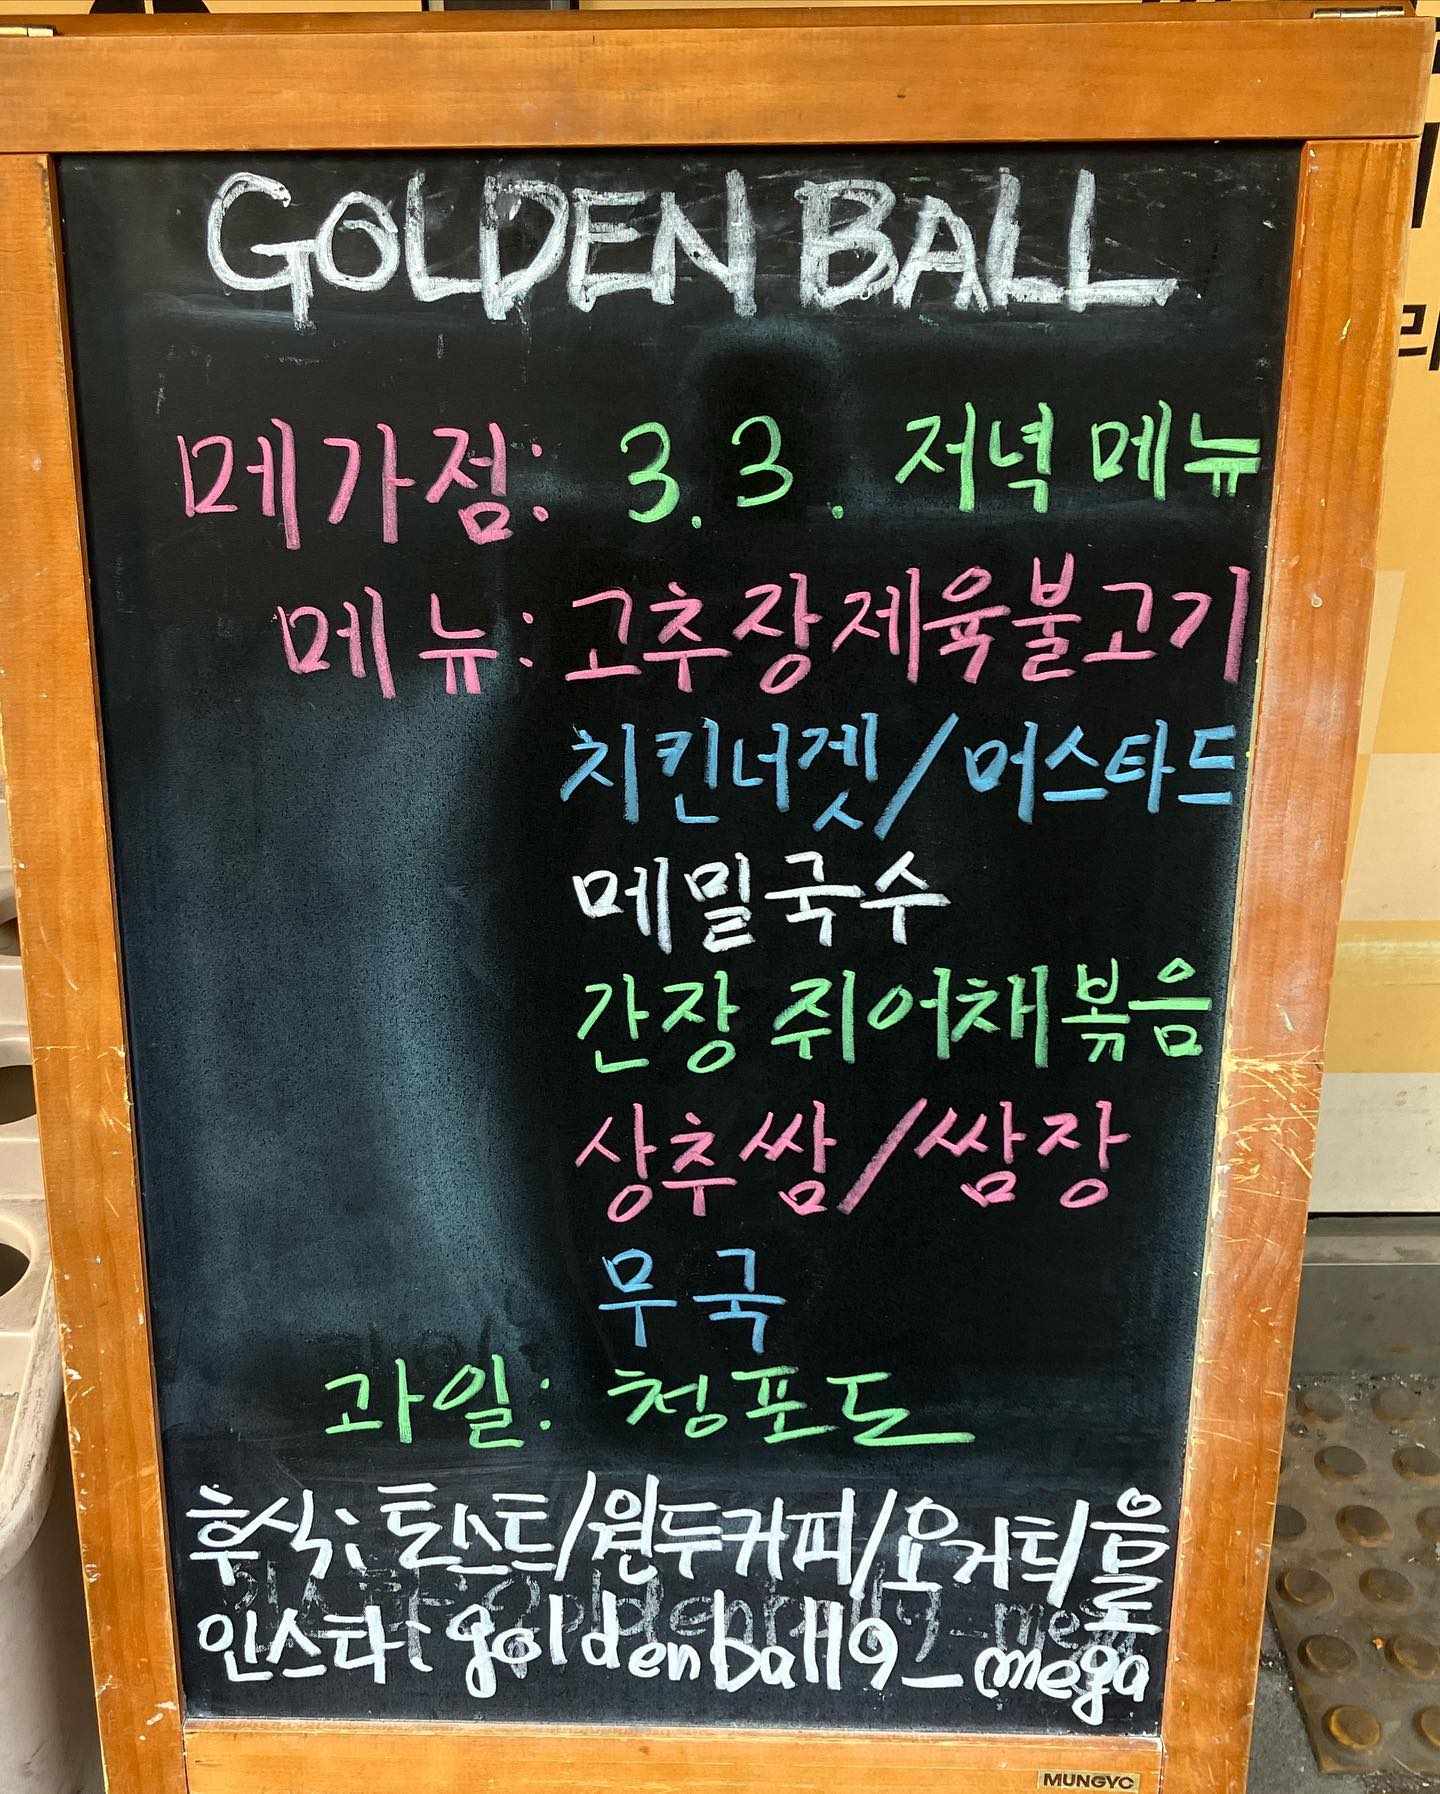 GOLDEN BALL
메가점: 3.3. 저녁 메뉴
메뉴: 고추장제육불고기
치킨너겟/머스타드
메밀국수
간장 쥐어채볶음
상추쌈/쌈장
무국
과일: 청포도
후식: 토스트/원두커피/요거트/음료
인스타: goldenball9_mega
MUNGYO